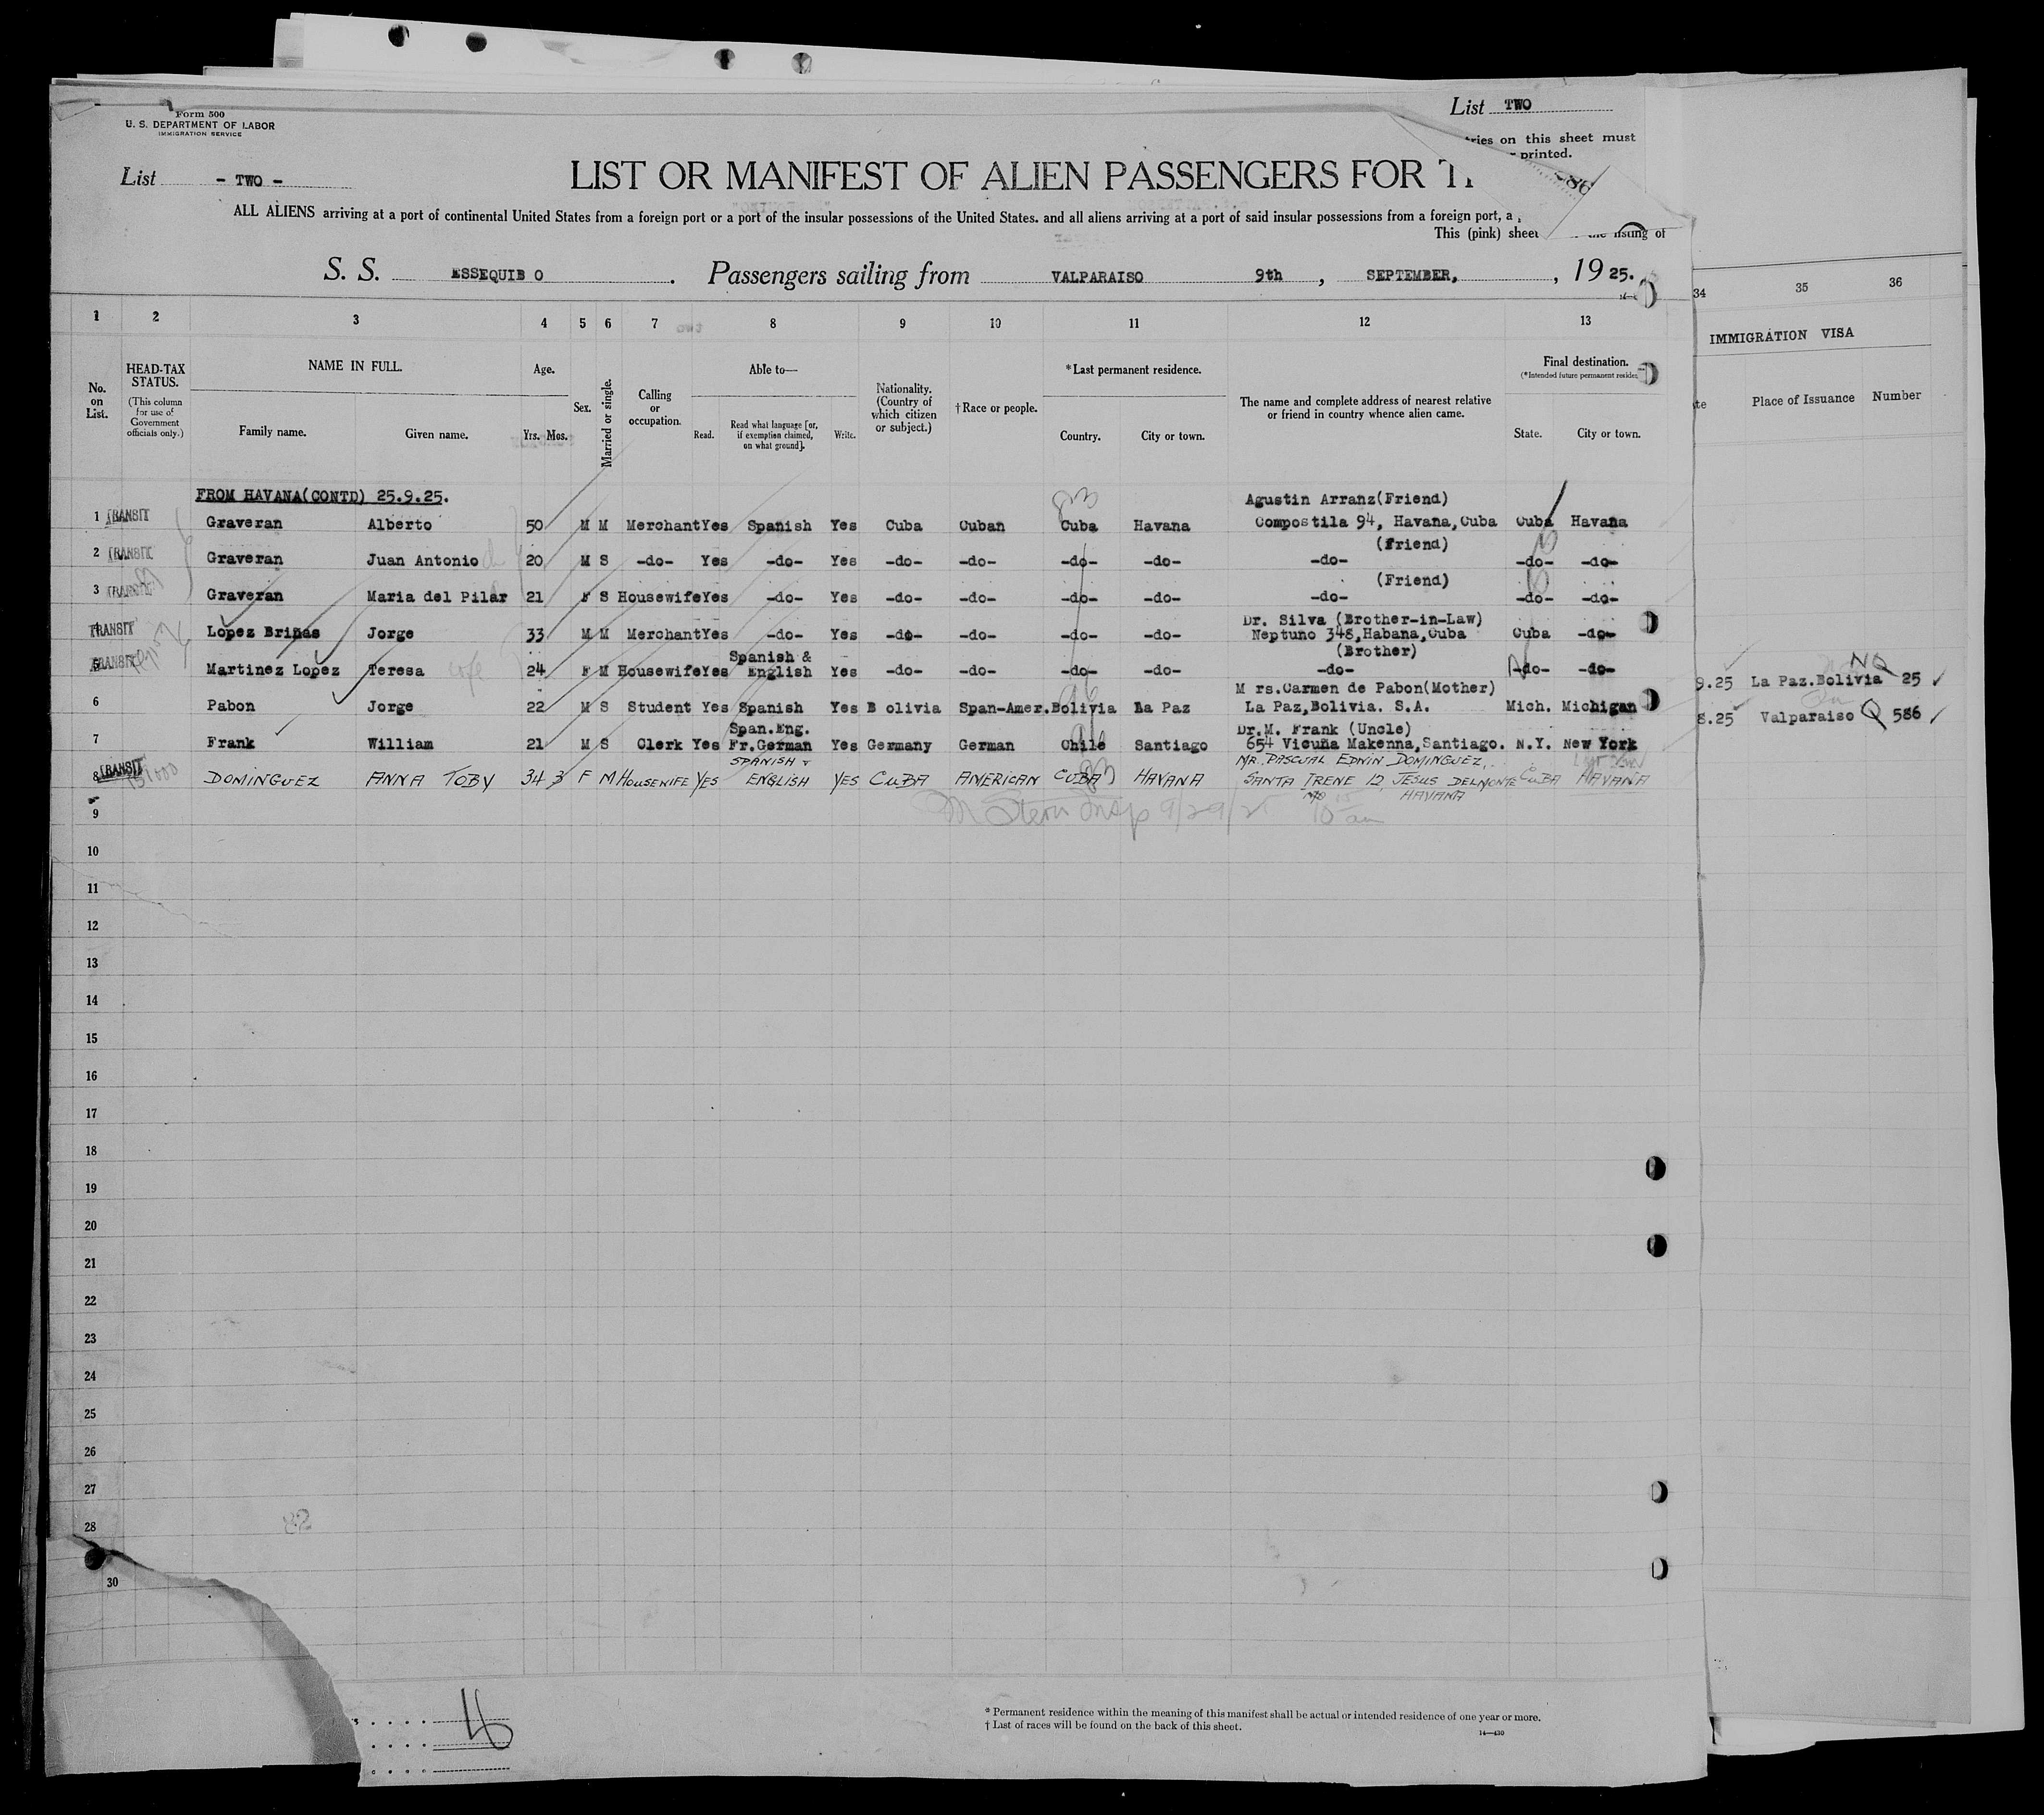 Form 500
U. S. DEPARTMENT OF LABOR
IMMIGRATION SERVICE
List TWO
ries on this sheet must
printed.
List - TWO -
LIST OR MANIFEST OF ALIEN PASSENGERS FOR T
ALL ALIENS arriving at a port of continental United States from a foreign port or a port of the insular possessions of the United States, and all aliens arriving at a port of said insular possessions from a foreign port, a
This (pink) sheet listing of
S. S. ESSEQUIBO. Passengers sailing from VALPARAISO 9th, SEPTEMBER, , 1925.
1 2 3 4 5 6 7 8 9 10 11 12 13 34 35 36
No. on List.
HEAD-TAX STATUS.
(This column for use of Government officials only.)
NAME IN FULL.
Family name. Given name.
Age.
Yrs. Mos.
Sex.
Married or single.
Calling or occupation.
Able to—
Read. Read what language [or, if exemption claimed, on what ground]. Write.
Nationality. (Country of which citizen or subject.)
†Race or people.
*Last permanent residence.
Country. City or town.
The name and complete address of nearest relative or friend in country whence alien came.
Final destination.
(*Intended future permanent residen
State. City or town.
IMMIGRATION VISA
te Place of Issuance Number
FROM HAVANA(CONTD) 25.9.25.
Agustin Arranz(Friend)
1 TRANSIT Graveran Alberto 50 M M Merchant Yes Spanish Yes Cuba Cuban Cuba Havana Compostila 94, Havana, Cuba Cuba Havana
(friend)
2 TRANSIT Graveran Juan Antonio 20 M S -do- Yes -do- Yes -do- -do- -do- -do- -do- -do- -do-
(Friend)
3 TRANSIT Graveran Maria del Pilar 21 F S Housewife Yes -do- Yes -do- -do- -do- -do- -do- -do- -do-
Dr. Silva (Brother-in-Law)
4 TRANSIT Lopez Briñas Jorge 33 M M Merchant Yes -do- Yes -do- -do- -do- -do- Neptuno 348, Habana, Cuba Cuba -do-
Spanish & (Brother)
5 TRANSIT Martinez Lopez Teresa 24 F M Housewife Yes English Yes -do- -do- -do- -do- -do- -do- -do-
M rs.Carmen de Pabon(Mother)
6 Pabon Jorge 22 M S Student Yes Spanish Yes B olivia Span-Amer. Bolivia La Paz La Paz,Bolivia. S.A. Mich. Michigan 9.25 La Paz.Bolivia NQ 25
Span.Eng. Dr.M. Frank (Uncle)
7 Frank William 21 M S Clerk Yes Fr.German Yes Germany German Chile Santiago 654 Vicuña Makenna, Santiago. N.Y. New York 8.25 Valparaiso Q 586
SPANISH & MR. PASCUAL EDWIN DOMINGUEZ,
8 TRANSIT DOMINGUEZ ANNA TOBY 34 3 F M HOUSEWIFE YES ENGLISH YES CUBA AMERICAN CUBA HAVANA SANTA IRENE 12, JESUS DELMONTE CUBA HAVANA
HAVANA
M Stern Insp 9/29/25 10 am
9
10
11
12
13
14
15
16
17
18
19
20
21
22
23
24
25
26
27
28
30
* Permanent residence within the meaning of this manifest shall be actual or intended residence of one year or more.
† List of races will be found on the back of this sheet.
14—430